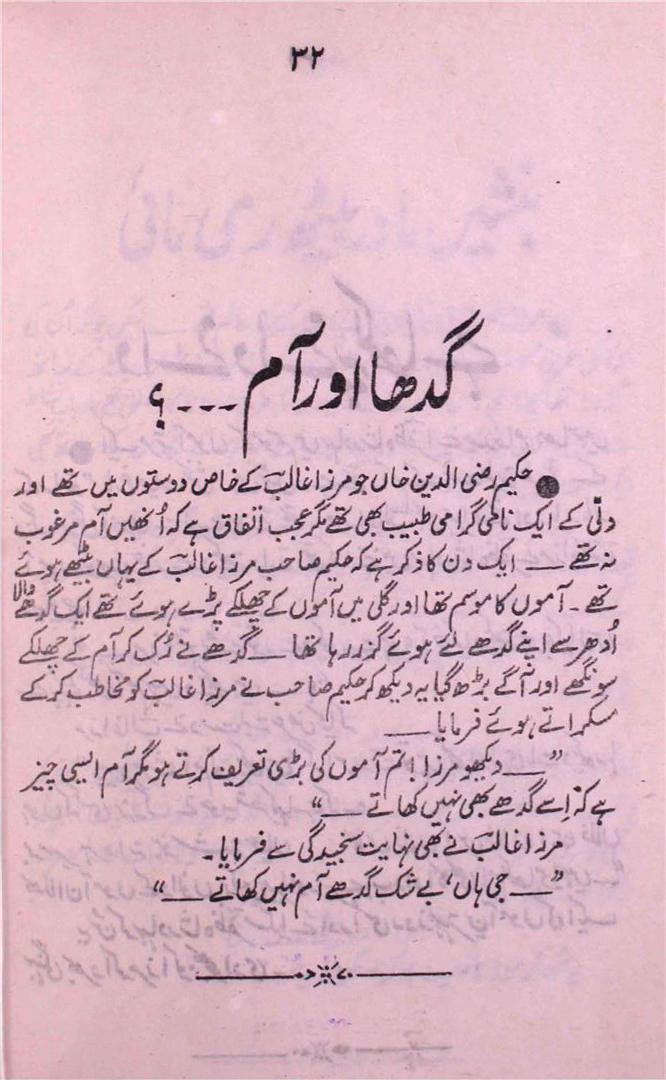 ۳۲
گدھا اور آم ۔۔۔؟
● حکیم رضی الدین خاں جو مرزا غالبؔ کے خاص دوستوں میں تھے اور
دلّی کے ایک نامی گرامی طبیب بھی تھے مگر عجب اتفاق ہے کہ اُنھیں آم مرغوب
نہ تھے — ایک دن کا ذکر ہے کہ حکیم صاحب مرزا غالبؔ کے یہاں بیٹھے ہوئے
تھے۔ آموں کا موسم تھا اور گلی میں آموں کے چھلکے پڑے ہوئے تھے ایک گدھے والا
اُدھر سے اپنے گدھے لئے ہوئے گزر رہا تھا — گدھے نے رُک کر آم کے چھلکے
سونگھے اور آگے بڑھ گیا یہ دیکھ کر حکیم صاحب نے مرزا غالبؔ کو مخاطب کر کے
مسکراتے ہوئے فرمایا —
”— دیکھو مرزا! تم آموں کی بڑی تعریف کرتے ہو مگر آم ایسی چیز
ہے کہ اِسے گدھے بھی نہیں کھاتے —“
مرزا غالبؔ نے بھی نہایت سنجیدگی سے فرمایا۔
”— جی ہاں، بے شک گدھے آم نہیں کھاتے —“